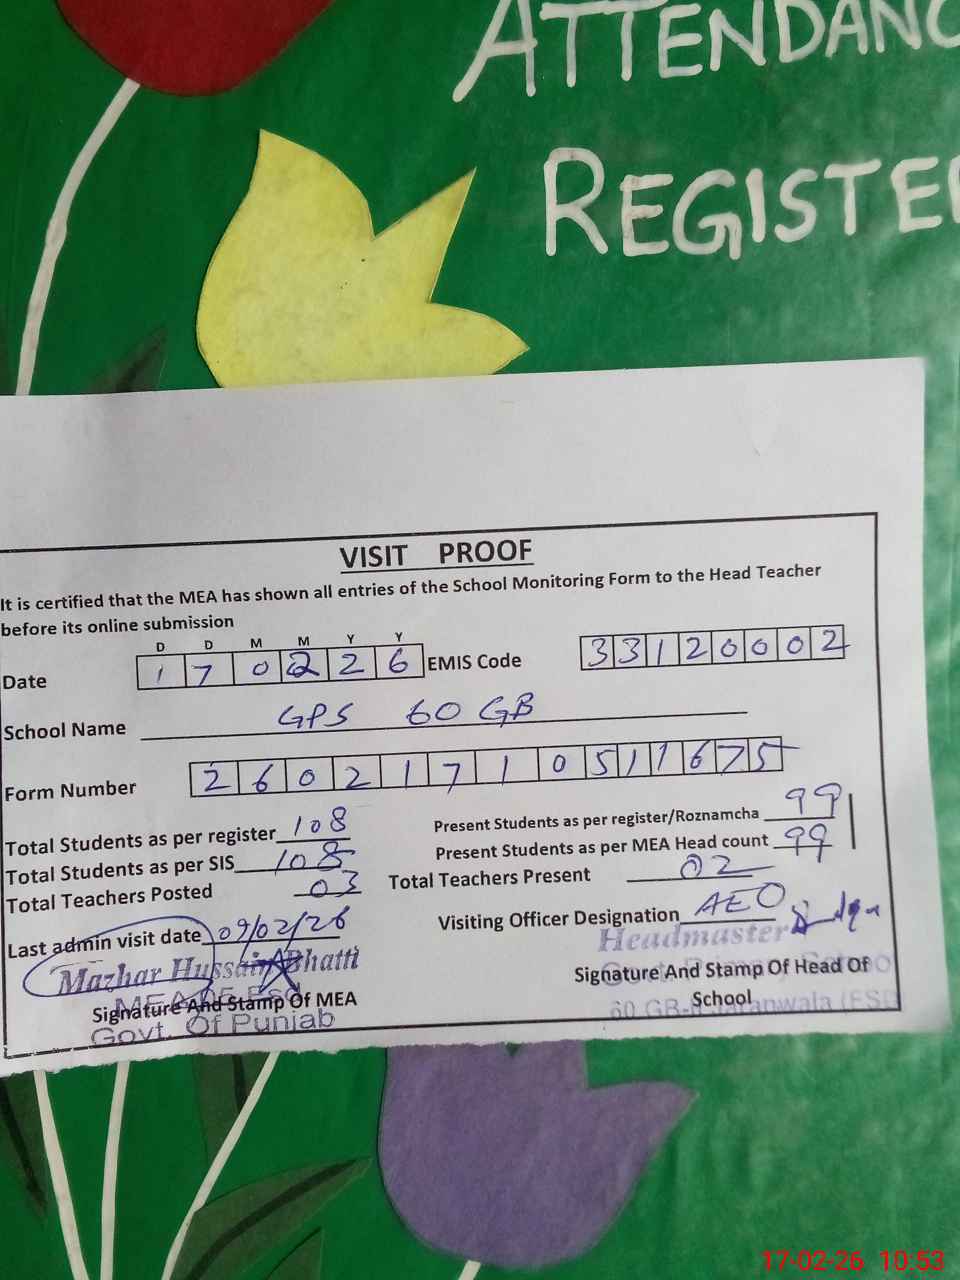 ATTENDANC
REGISTE
VISIT PROOF
It is certified that the MEA has shown all entries of the School Monitoring Form to the Head Teacher
before its online submission
D D M M Y Y
Date 1 7 0 2 2 6 EMIS Code 3 3 1 2 0 0 0 2
School Name GPS 60 GB
Form Number 2 6 0 2 1 7 1 0 5 1 1 6 7 5
Total Students as per register 108 Present Students as per register/Roznamcha 99
Total Students as per SIS 108 Present Students as per MEA Head count 99
Total Teachers Posted 03 Total Teachers Present 02
Last admin visit date 09/02/26 Visiting Officer Designation AEO
Mazhar Hussain Bhatti Headmaster
Signature And Stamp Of MEA Signature And Stamp Of Head Of
School
Govt. Of Punjab 60 GB Jaranwala (FSD
17-02-26 10:53